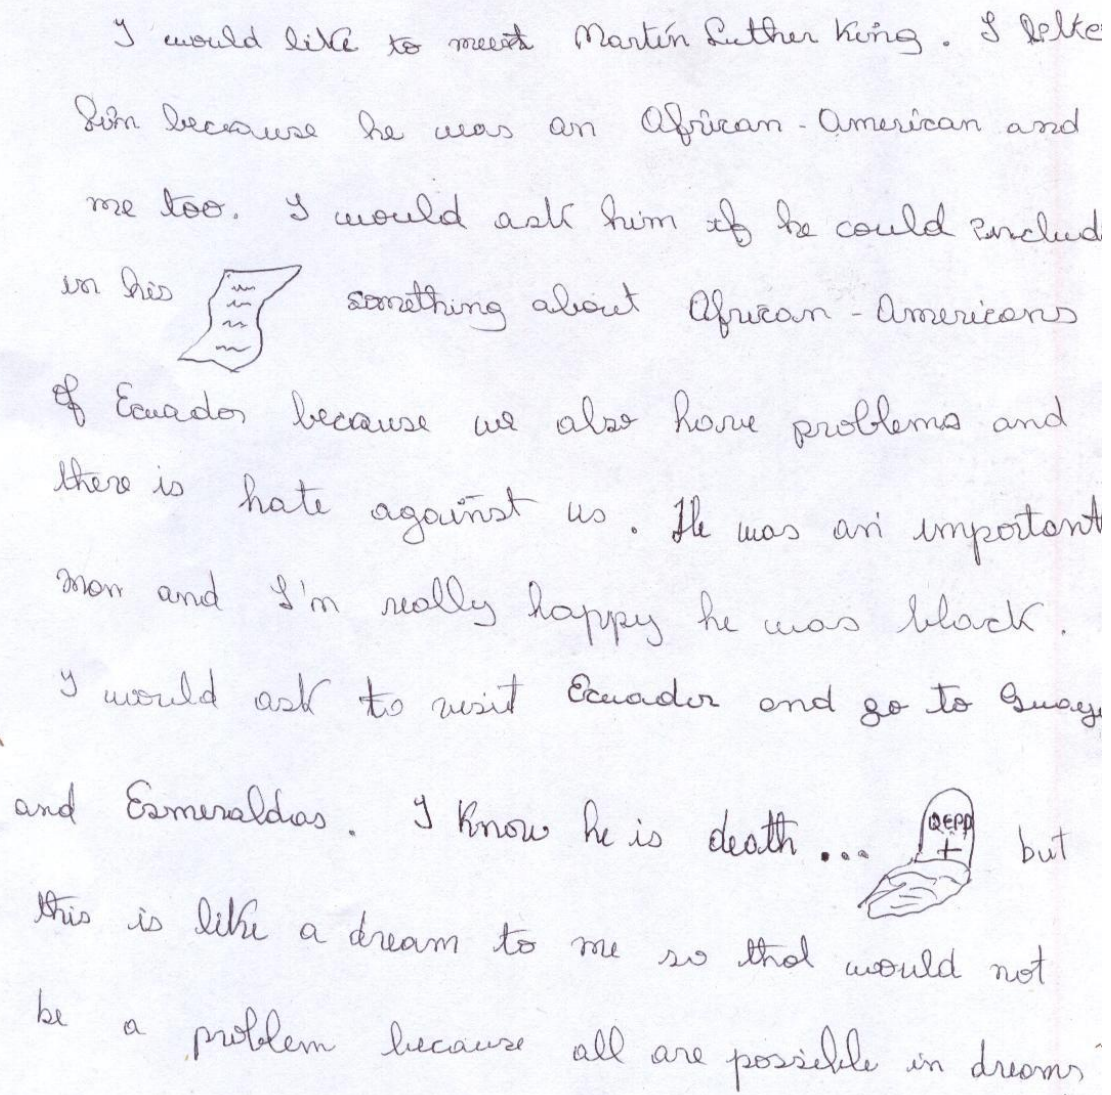 I would like to meet Martin Luther King. I
him because he was an African-American and
me too. I would ask him if he could includ
in his something about African-Americans
of Ecuador because we also have problems and
there is hate against us. He was an important
man and I'm really happy he was black.
I would ask to visit Ecuador and go to Guay
and Esmeraldas. I know he is death... QEPD but
this is like a dream to me so that would not
be a problem because all are possible in dreams